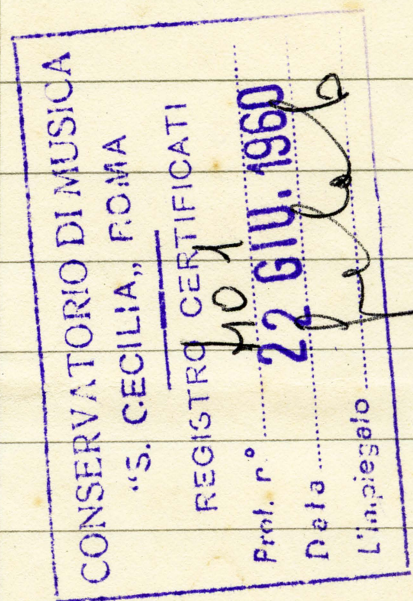 CONSERVATORIO DI MUSICA
"S. CECILIA„ ROMA
REGISTRO CERTIFICATI
Prot. n° 401
Data 22 GIU. 1960
L'impiegato